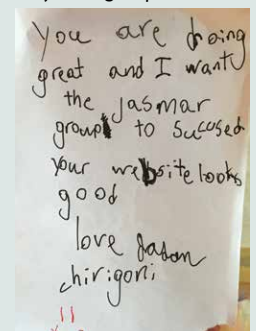 you are doing
great and I want
the Jasmar
group to Sucused
your website looks
good
love Jason
chirigoni